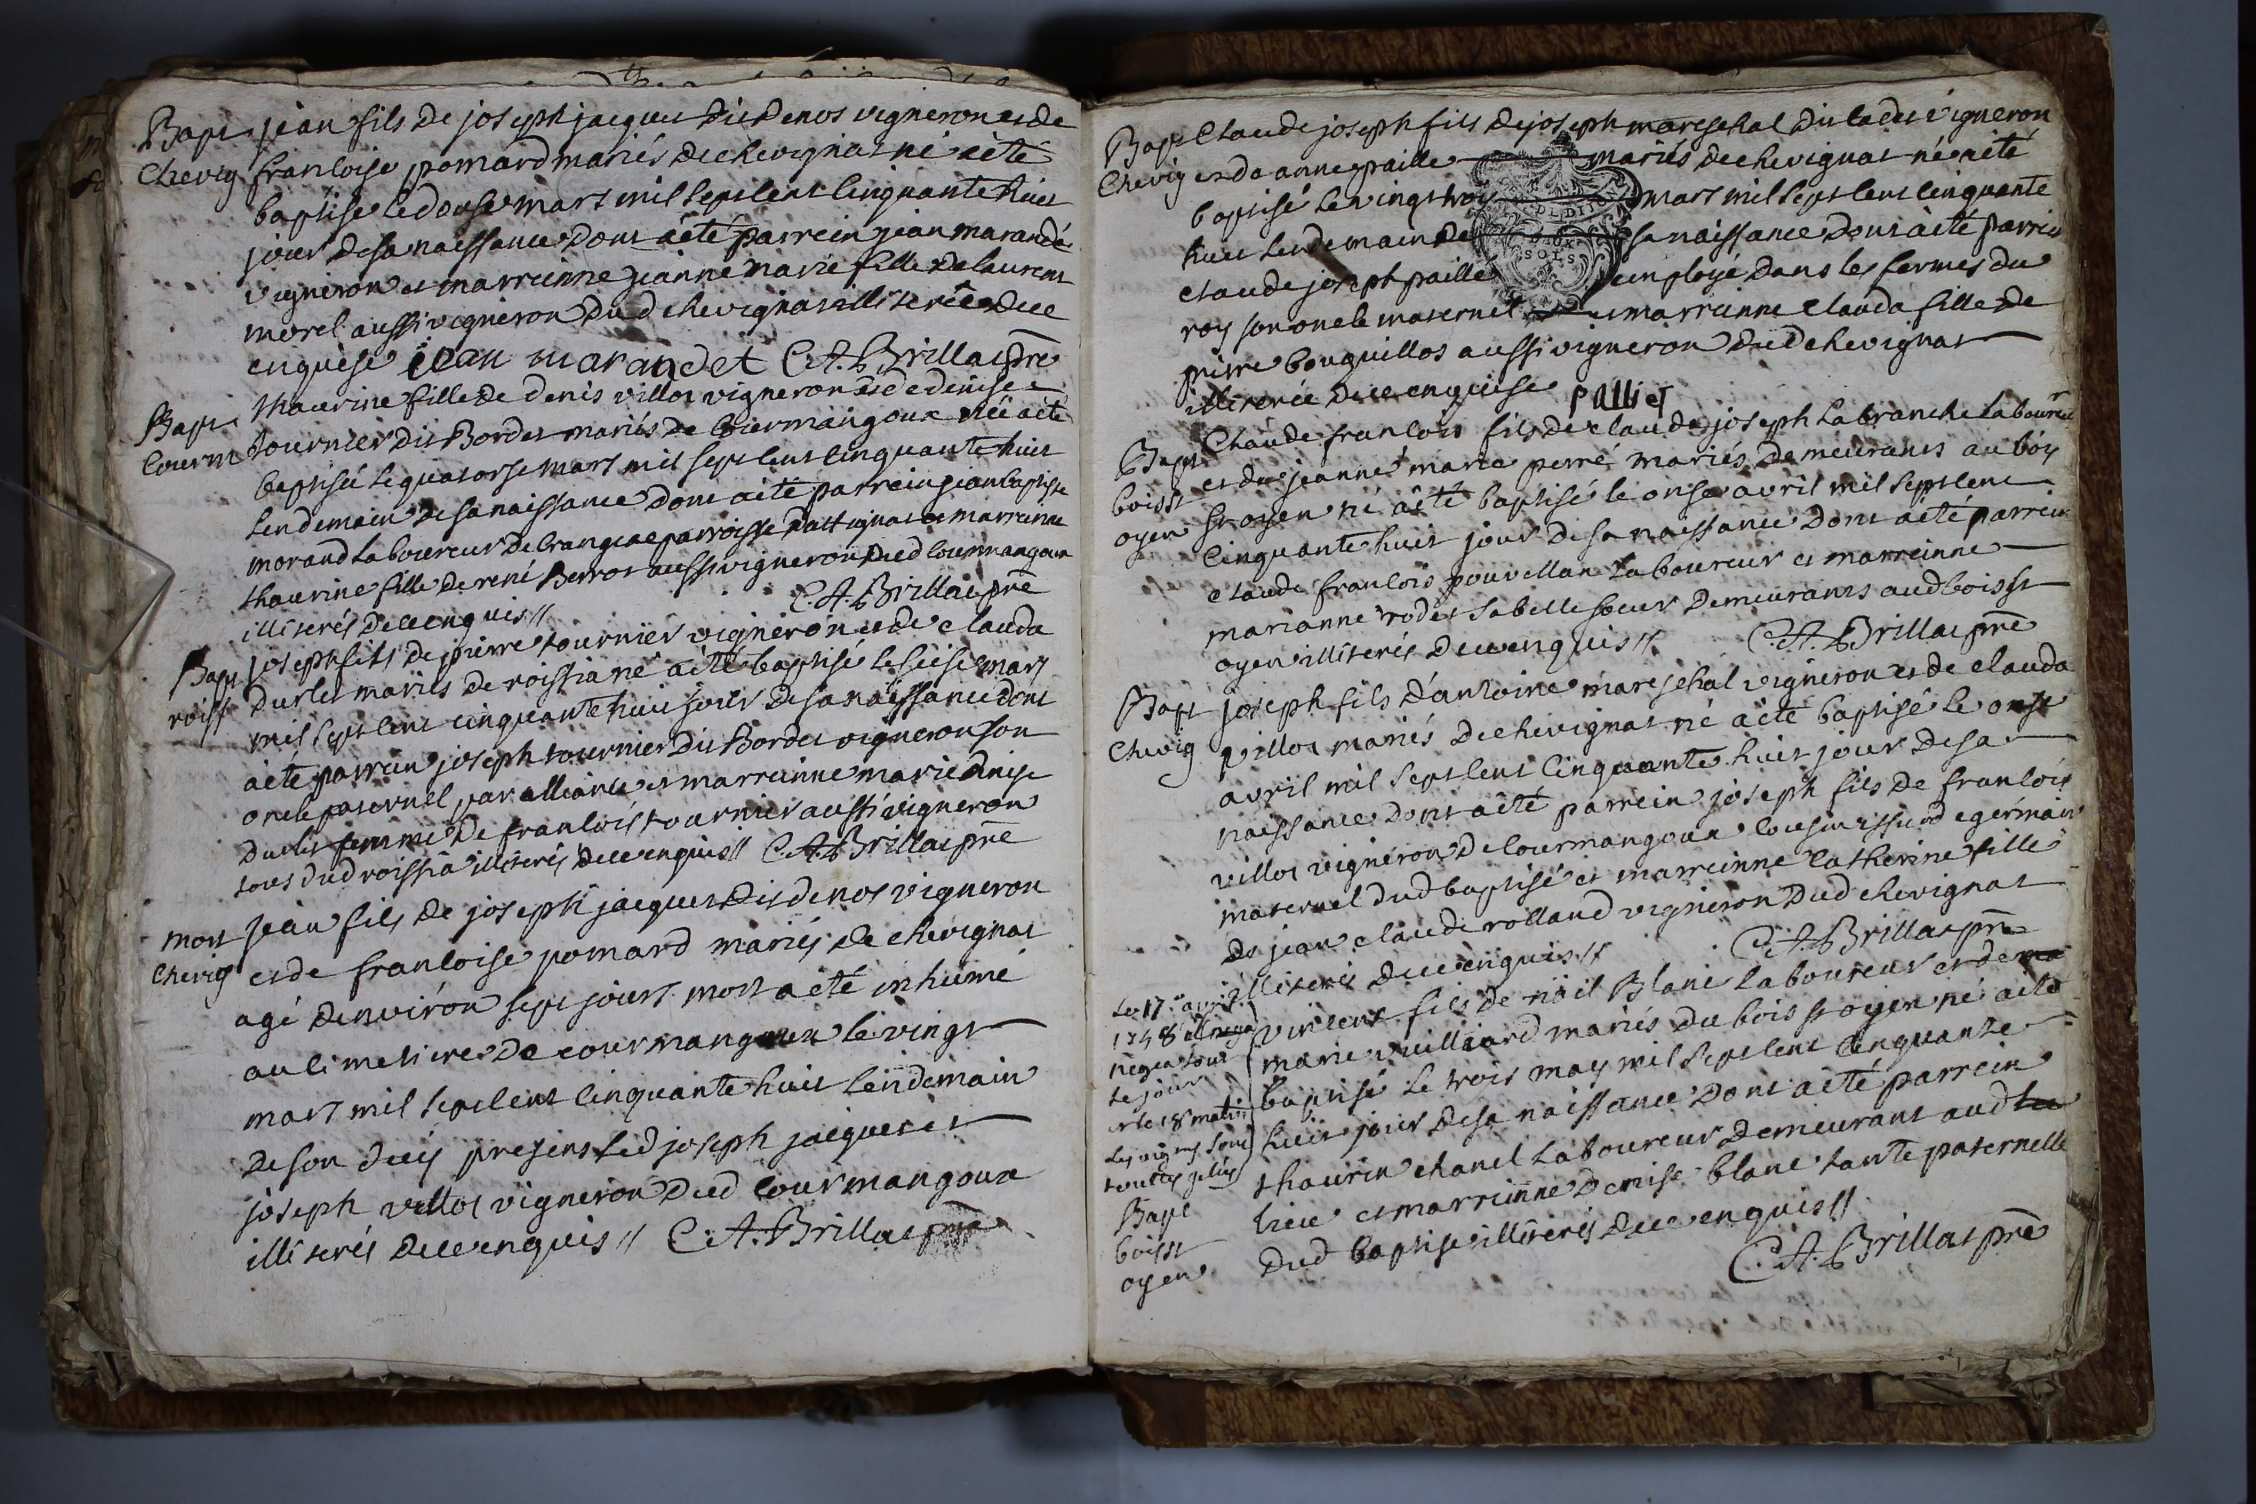 Bapt jean fils de joseph jacquet dit denos vigneron et de
Chevig francoise pomard mariés de chevignat né a été
baptisé le douse mars mil sept cent cinquante huit
jour de sa naissance dont a été parrein jean marandet
vigneron et marreinne jeanne marie fille de laurent
morel aussi vigneron dud chevignat illiterée de ce
enquise jean marandet C. A. Brillat ptre
Bapt thaurine fille de denis villot vigneron et de denise
Courm tournier dit Bordet mariés de Courmangoux née a été
baptisée le quatorse mars mil sept cent cinquante huit
lendemain de sa naissance dont a été parrein jean baptiste
morand laboureur de parroisse et marreinne
thaurine fille de rené Berrot aussi vigneron dud courmangoux
illiterés de ce enquis // C. A. Brillat ptre
Bapt joseph fils de pierre tournier vigneron et de clauda
roiss durlet mariés de roissia né a été baptisé le seise mars
mil sept cent cinquante huit jour de sa naissance dont
a été parrein joseph tournier dit Bordet vigneron son
oncle paternel par alliance et marreinne marie denise
durlet femme de francois tournier aussi vigneron
tous dud roissia illiterés de ce enquis // C. A. Brillat ptre
mort jean fils de joseph jacquet dit denos vigneron
Chevig et de francoise pomard mariés de chevignat
agé denviron sept jours mort a été inhumé
au cimetiere de courmangoux le vingt
mars mil sept cent cinquante huit lendemain
de son decés presens led joseph jacquet et
joseph villot vigneron dud courmangoux
illiterés de ce enquis // C. A. Brillat ptre
Bapt Claude joseph fils de joseph mareschal dit vigneron
Chevig et de anne paillet mariés de chevignat né a été
baptisé le vingt trois mars mil sept cent cinquante
huit lendemain de sa naissance dont a été parrein
claude joseph paillet employé dans les fermes du
roy son oncle maternel et marreinne clauda fille de
pierre bouquillot aussi vigneron dud chevignat
illiterée de ce enquise palliet
Bapt Claude francois fils de claude joseph Labranche laboureur
boisst et de jeanne marie perré mariés demeurants au bois
oyen st oyen né a été baptisé le onse avril mil sept cent
cinquante huit jour de sa naissance dont a été parrein
claude francois laboureur et marreinne
marianne rodet sa belle soeur demeurants aud bois st
oyen illiterés de ce enquis // C. A. Brillat ptre
Bapt joseph fils d'antoine mareschal vigneron et de clauda
Chevig villot mariés de chevignat né a été baptisé le onse
avril mil sept cent cinquante huit jour de sa
naissance dont a été parrein joseph fils de francois
villot vigneron de courmangoux cousin issu de germain
maternel dud baptisé et marreinne catherine fille
de jean claude rolland vigneron dud chevignat
illiterés de ce enquis // C. A. Brillat ptre
Le 17e avril
1758 il neiga
neiga tout
le jour
et le 18 matin
les vignes sont
toutes gelées
Bapt
boisst
oyen
vincent fils de Blanc laboureur et de
marie vuilliard mariés du bois st oyen né a été
baptisé le trois may mil sept cent cinquante
huit jour de sa naissance dont a été parrein
thaurin chanel laboureur demeurant aud
lieu et marreinne denise blanc tante paternelle
dud baptisé illiterés de ce enquis //
C. A. Brillat ptre